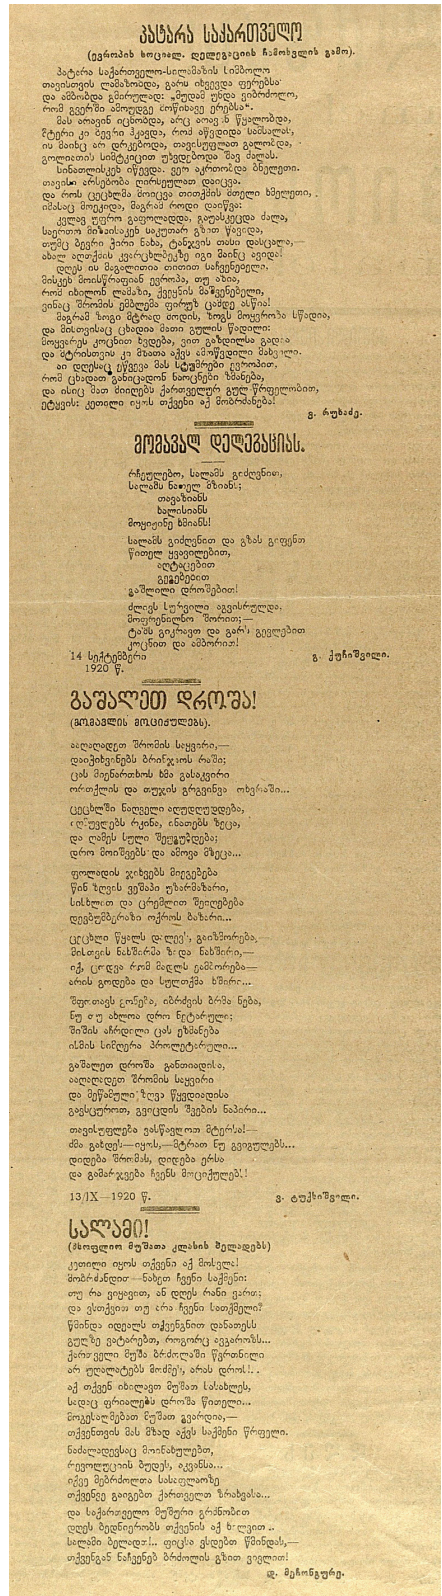 პატარა საქართველო
(ევროპის სოციალ. დელეგაციის ჩამოსვლის გამო).
პატარა საქართველო-სილამაზის სიმბოლო
თავისთვის ლამაზობდა, გარს იხვევდა ფერებსა
და ამბობდა გმირულად: „მუდამ უნდა ვიბრძოლო,
რომ გვერში ამოუდგე მოწინავე ერებსა“.
მას არავინ იცნობდა, არც არავინ წყალობდა,
მტერი კი ბევრი ჰყავდა, რომ აწვდიდა სამსალას,
ის მაინც არ დრკებოდა, თავისუფლად გალობდა,
გოლიათის სიმტკიცით უხვდებოდა შავ ძალას.
სინათლისკენ იწევდა. ვერ აკრთობდა ბნელეთი.
თავისი არსებობა ღირსეულათ დაიცვა.
და როს ცეცხლმა მოიცვა თითქმის მთელი ხმელეთი,
იმასაც მოეკიდა, მაგრამ როდი დაიწვა:
კვლავ უფრო გაფოლადდა, გაუასკეცდა ძალა,
საერთო მიზნისაკენ საკუთარ გზით წავიდა,
თუმც ბევრი ჭირი ნახა, ტანჯვის თასი დასცალა,—
ახალ აღთქმის კვარცხლბეკზე იგი მაინც ავიდა!
დღეს ის მაგალითია თითით საჩვენებელი,
მისკენ მოისწრაფიან ევროპა, თუ აზია,
რომ იხილონ ლამაზი, ქვეყნის მაშვენებელი,
ვინაც შრომის ემბლემა ფირუზ ცამდე ასწია!
მაგრამ ზოგი მტრად მოდის, ზოგს მოყვრობა სწადია,
და მისთვისაც ცხადია მათი გულის წადილი:
მოყვარეს კოცნით ხვდება, ვით გაზდილსა გადია
და მტრისთვის კი მზათა აქვს ამოწვდილი მახვილი.
აი დღესაც ეწვევა მას სტუმრები ევროპით,
რომ ცხადათ განიცადონ ნაოცნები ზმანება,
და ისიც მათ მიიღებს ქართველურ გულ-წრფელობით,
ეტყვის: კეთილი იყოს თქვენი აქ მობრძანება!
ვ. რუხაძე.
მომავალ დელეგაციას.
რჩეულებო, სალამს გიძღვნით,
სალამს ნათელ მზიანს;
თავაზიანს
ხალისიანს
მოყიჟინე ხმიანს!
სალამს გიძღვნით და გზას გიფენთ
წითელ ყვავილებით,
აღტაცებით
გეგებებით
გაშლილი დროშებით!
ძლივს სურვილი აგვისრულდა,
მოფრენილნო შორით;—
ტაშს გიკრავთ და გარს გევლებით
კოცნით და ამბორით!
14 სექტემბერი
1920 წ.
გ. ქუჩიშვილი.
გაშალეთ დროშა!
(მომავლის მოციქულებს).
ააღაღადეთ შრომის საყვირი,—
დაიჭიხვინებს ბრინჯაოს რაში;
ცას მიენართხოს ხმა გასაკვირი
ორთქლის და თუჯის გრგვინვა ოხვრაში...
ცეცხლში ნაღველი აღუდღუდდება,
რკინა, ინათებს ზეცა,
და ღამეს სული შეუგუბდება;
დრო მოიშვებს და ამოვა მზეცა...
ფოლადის ჯიხვებს მიეგებება
წინ ზღვის ვეშაპი უზარმაზარი,
სისხლით და ცრემლით შეიღებება
დევბუმბერაზი ოქროს ბაზარი...
ცეცხლი წყალს დალევს, გაიზმორება,
მისთვის ნახშირმა ზიდა ნახშირი,—
იქ, ცოდვა რომ მადლს ეამბორება—
არის გოდება და სულთქმა ხშირი...
შფოთავს გონება, იბრძვის ბრმა ნება,
ნუ თუ ახლოა დრო ნეტარული;
შიშის აჩრდილი ცას ეზმანება
ისმის სიმღერა პროლეტარული...
გაშალეთ დროშა განთიადისა,
ააღაღადეთ შრომის საყვირი
და მეწამული ზღვა წყვდიადისა
გავსცუროთ, გვიცდის შვების ნაპირი...
თავისუფლება ვასწავლოთ მტერსა!—
ძმა გახდეს—იყოს,—მტრათ ნუ გვიგულებს...
დიდება შრომას, დიდება ერსა
და გამარჯვება ჩვენს მოციქულებს!
13/IX—1920 წ.
ვ. ტუქსიშვილი.
სალამი!
(მსოფლიო მუშათა კლასის ბელადებს)
კეთილი იყოს თქვენი აქ მოსვლა!
მობრძანდით—ნახეთ ჩვენი საქმენი:
თუ რა ვიყავით, ან დღეს რანი ვართ;
და ვსთქვით თუ არა ჩვენი სათქმელი?
წმინდა იდეალს თქვენგნით დანათესს
გულზე ვატარებთ, როგორც ავგაროზს...
ქართველი მუშა ბრძოლაში წვრთნილი
არ უღალატებს მოძმეს, არას დროს!..
აქ თქვენ იხილავთ მუშათ სასახლეს,
სადაც ფრიალებს დროშა წითელი...
მოგესალმებათ მუშათ გვარდია,—
თქვენთვის მას მზად აქვს საქმენი წრფელი.
ნაძალადევსაც მოინახულებთ,
რევოლუციის ბუდეს, აკვანსა...
იქვე მებრძოლთა სასაფლაოზე
თქვენვე გაიგებთ ქართველთ ზრახვასა...
და საქართველო მუშური გრძნობით
დღეს ბედნიერობს თქვენის აქ ხილვით..
სალამი ბელადთ!.. ფიცსა ვსდებთ წმინდას,—
თქვენგან ნაჩვენებ ბრძოლის გზით ვივლით!
დ. მეჩონგურე.